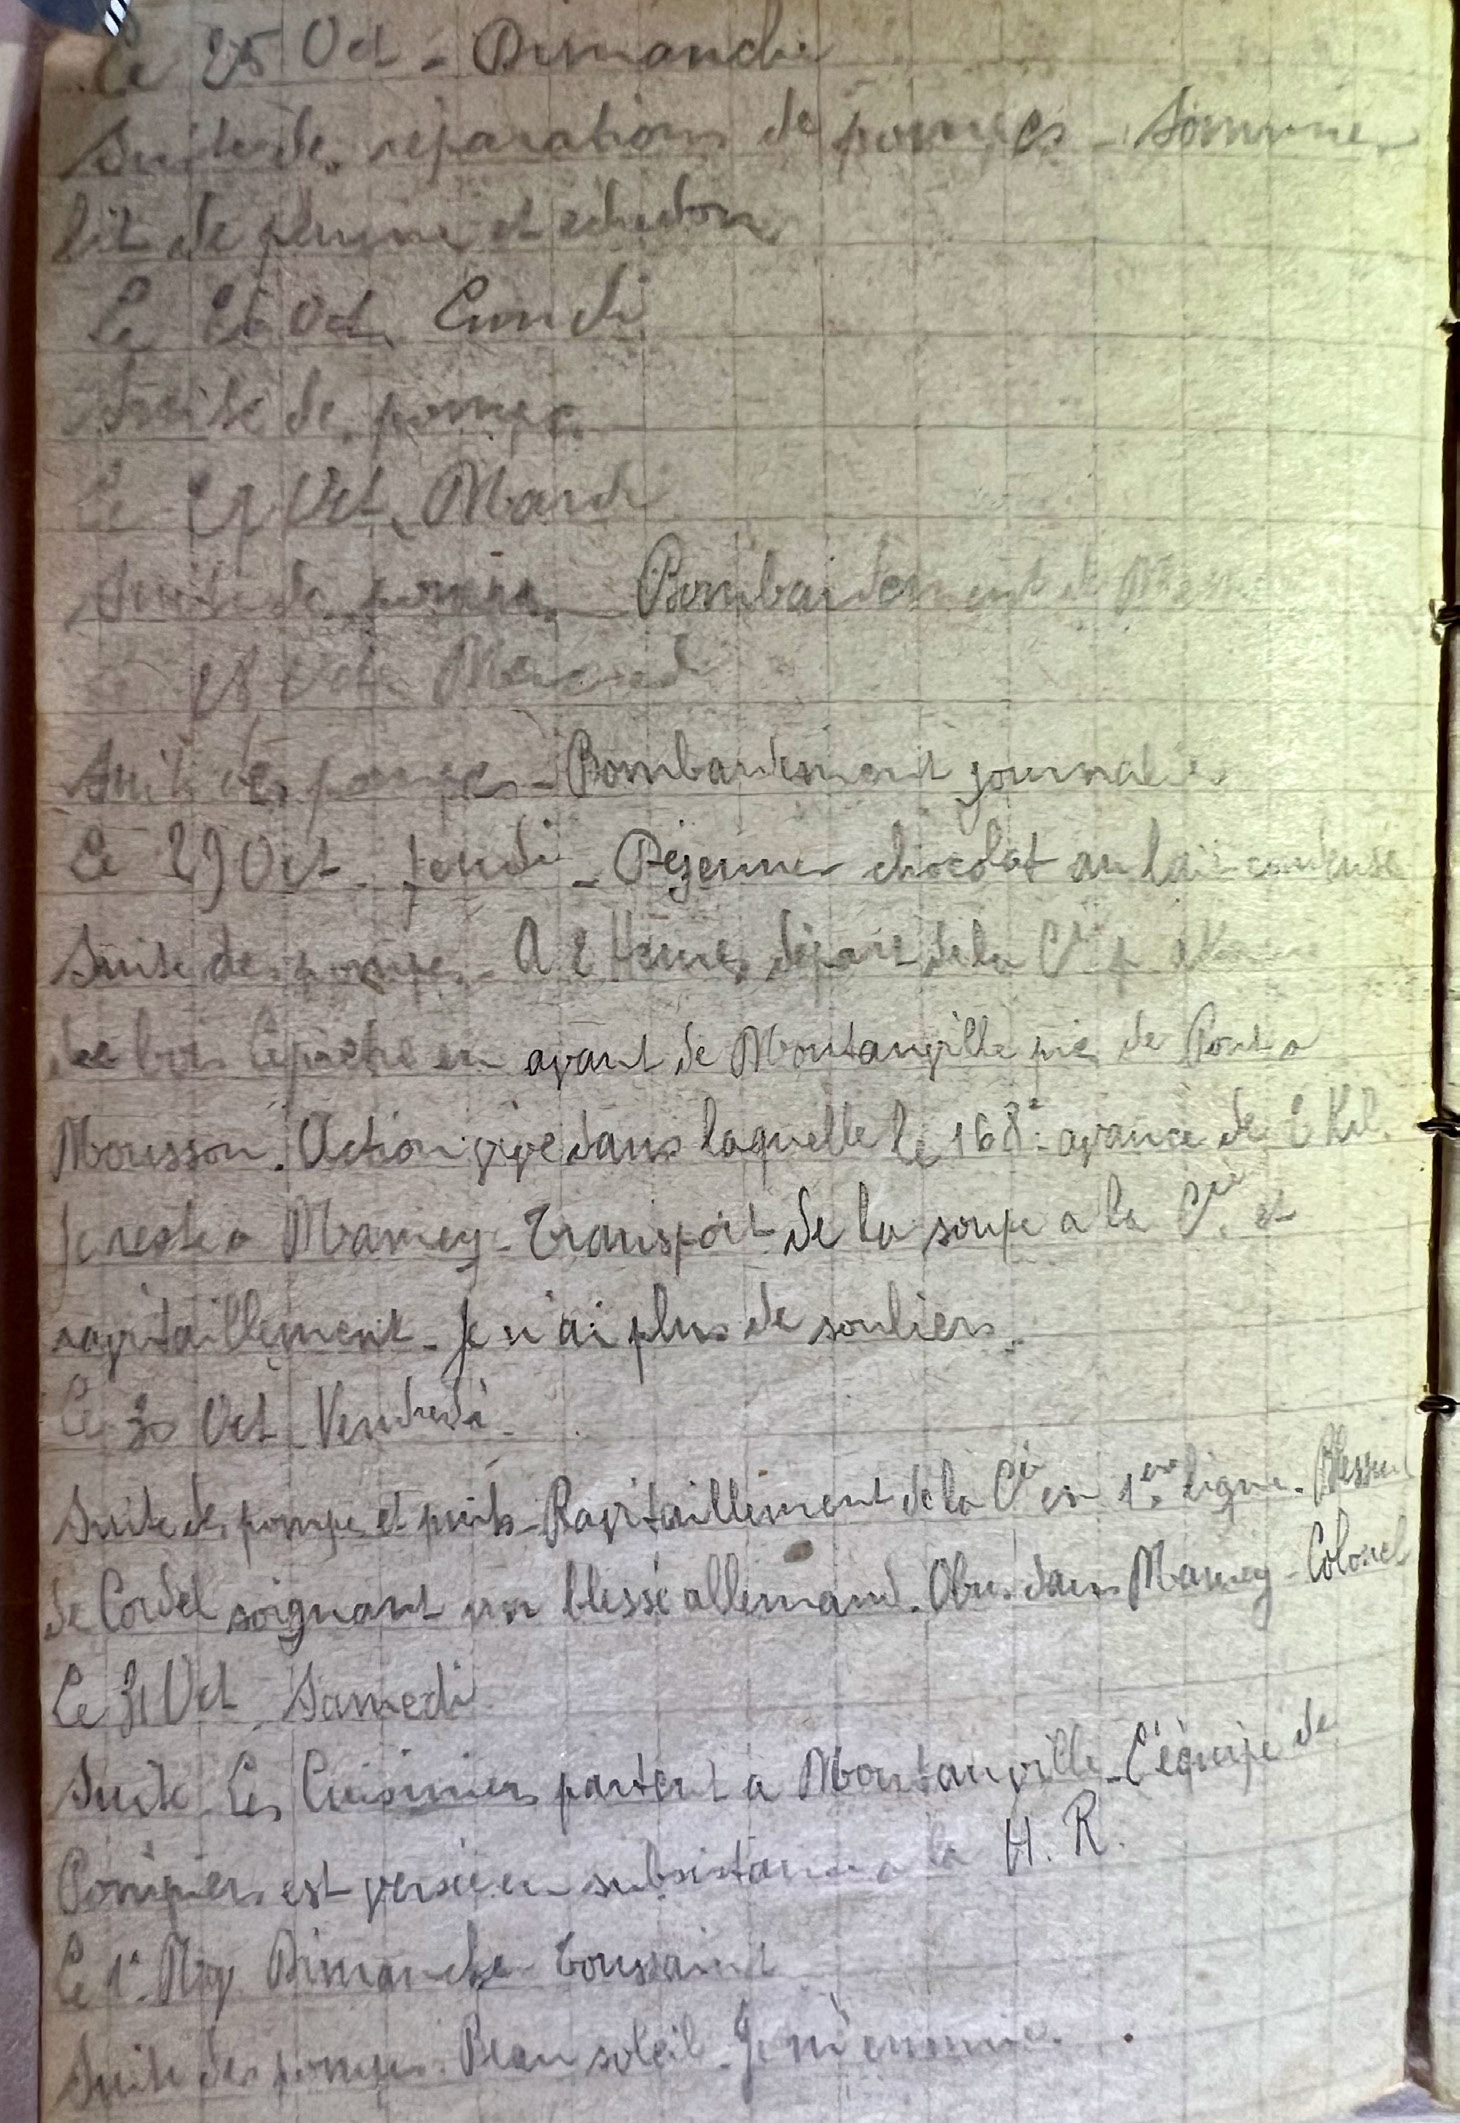 Le 25 Oct - Dimanche
Suite de réparations de pompes - Sommier
lit de plume et edredon
Le 26 Oct. Lundi
Suite de pompes
Le 27 Oct. Mardi
Suite de pompes - Bombardement de
Le 28 Oct. Mercredi
Suite des pompes - Bombardement journalier
Le 29 Oct. Jeudi - Déjeuner chocolat au lait condensé
Suite des pompes - A 2 Heures départ de la Cie p.
bois Leprêtre en avant de Montauville près de Pont a
Mousson. Action vive dans laquelle le 168e avance de 2 Kil.
Je reste a Mamey - Transport de la soupe a la Cie et
ravitaillement - Je n'ai plus de souliers.
Le 30 Oct - Vendredi -
Suite des pompes et puits - Ravitaillement de la Cie en 1ere ligne. Blessure
de Cordel soignant un blessé allemand. Obus dans Mamey - Colonel
Le 31 Oct. Samedi
Suite - Les Cuisiniers partent a Montauville - L'équipe de
Pompiers est versée en subsistance a la H. R.
Le 1e Nov. Dimanche - Toussaint
Suite des pompes. Beau soleil. Je m'ennuie.